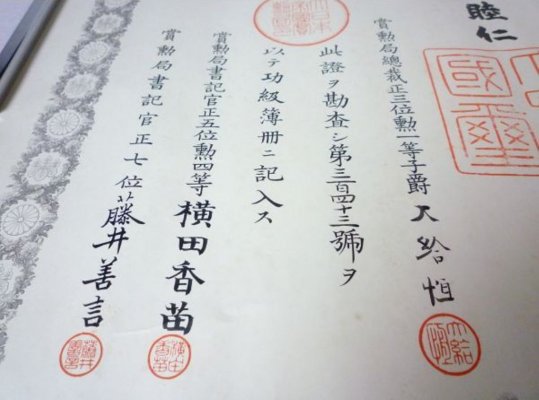 睦仁
國璽
賞勲局總裁正三位勲一等子爵 大給恒
此證ヲ勘査シ第三百四十三號ヲ
以テ功級簿册ニ記入ス
賞勲局書記官正五位勲四等 横田香苗
賞勲局書記官正七位 藤井善言